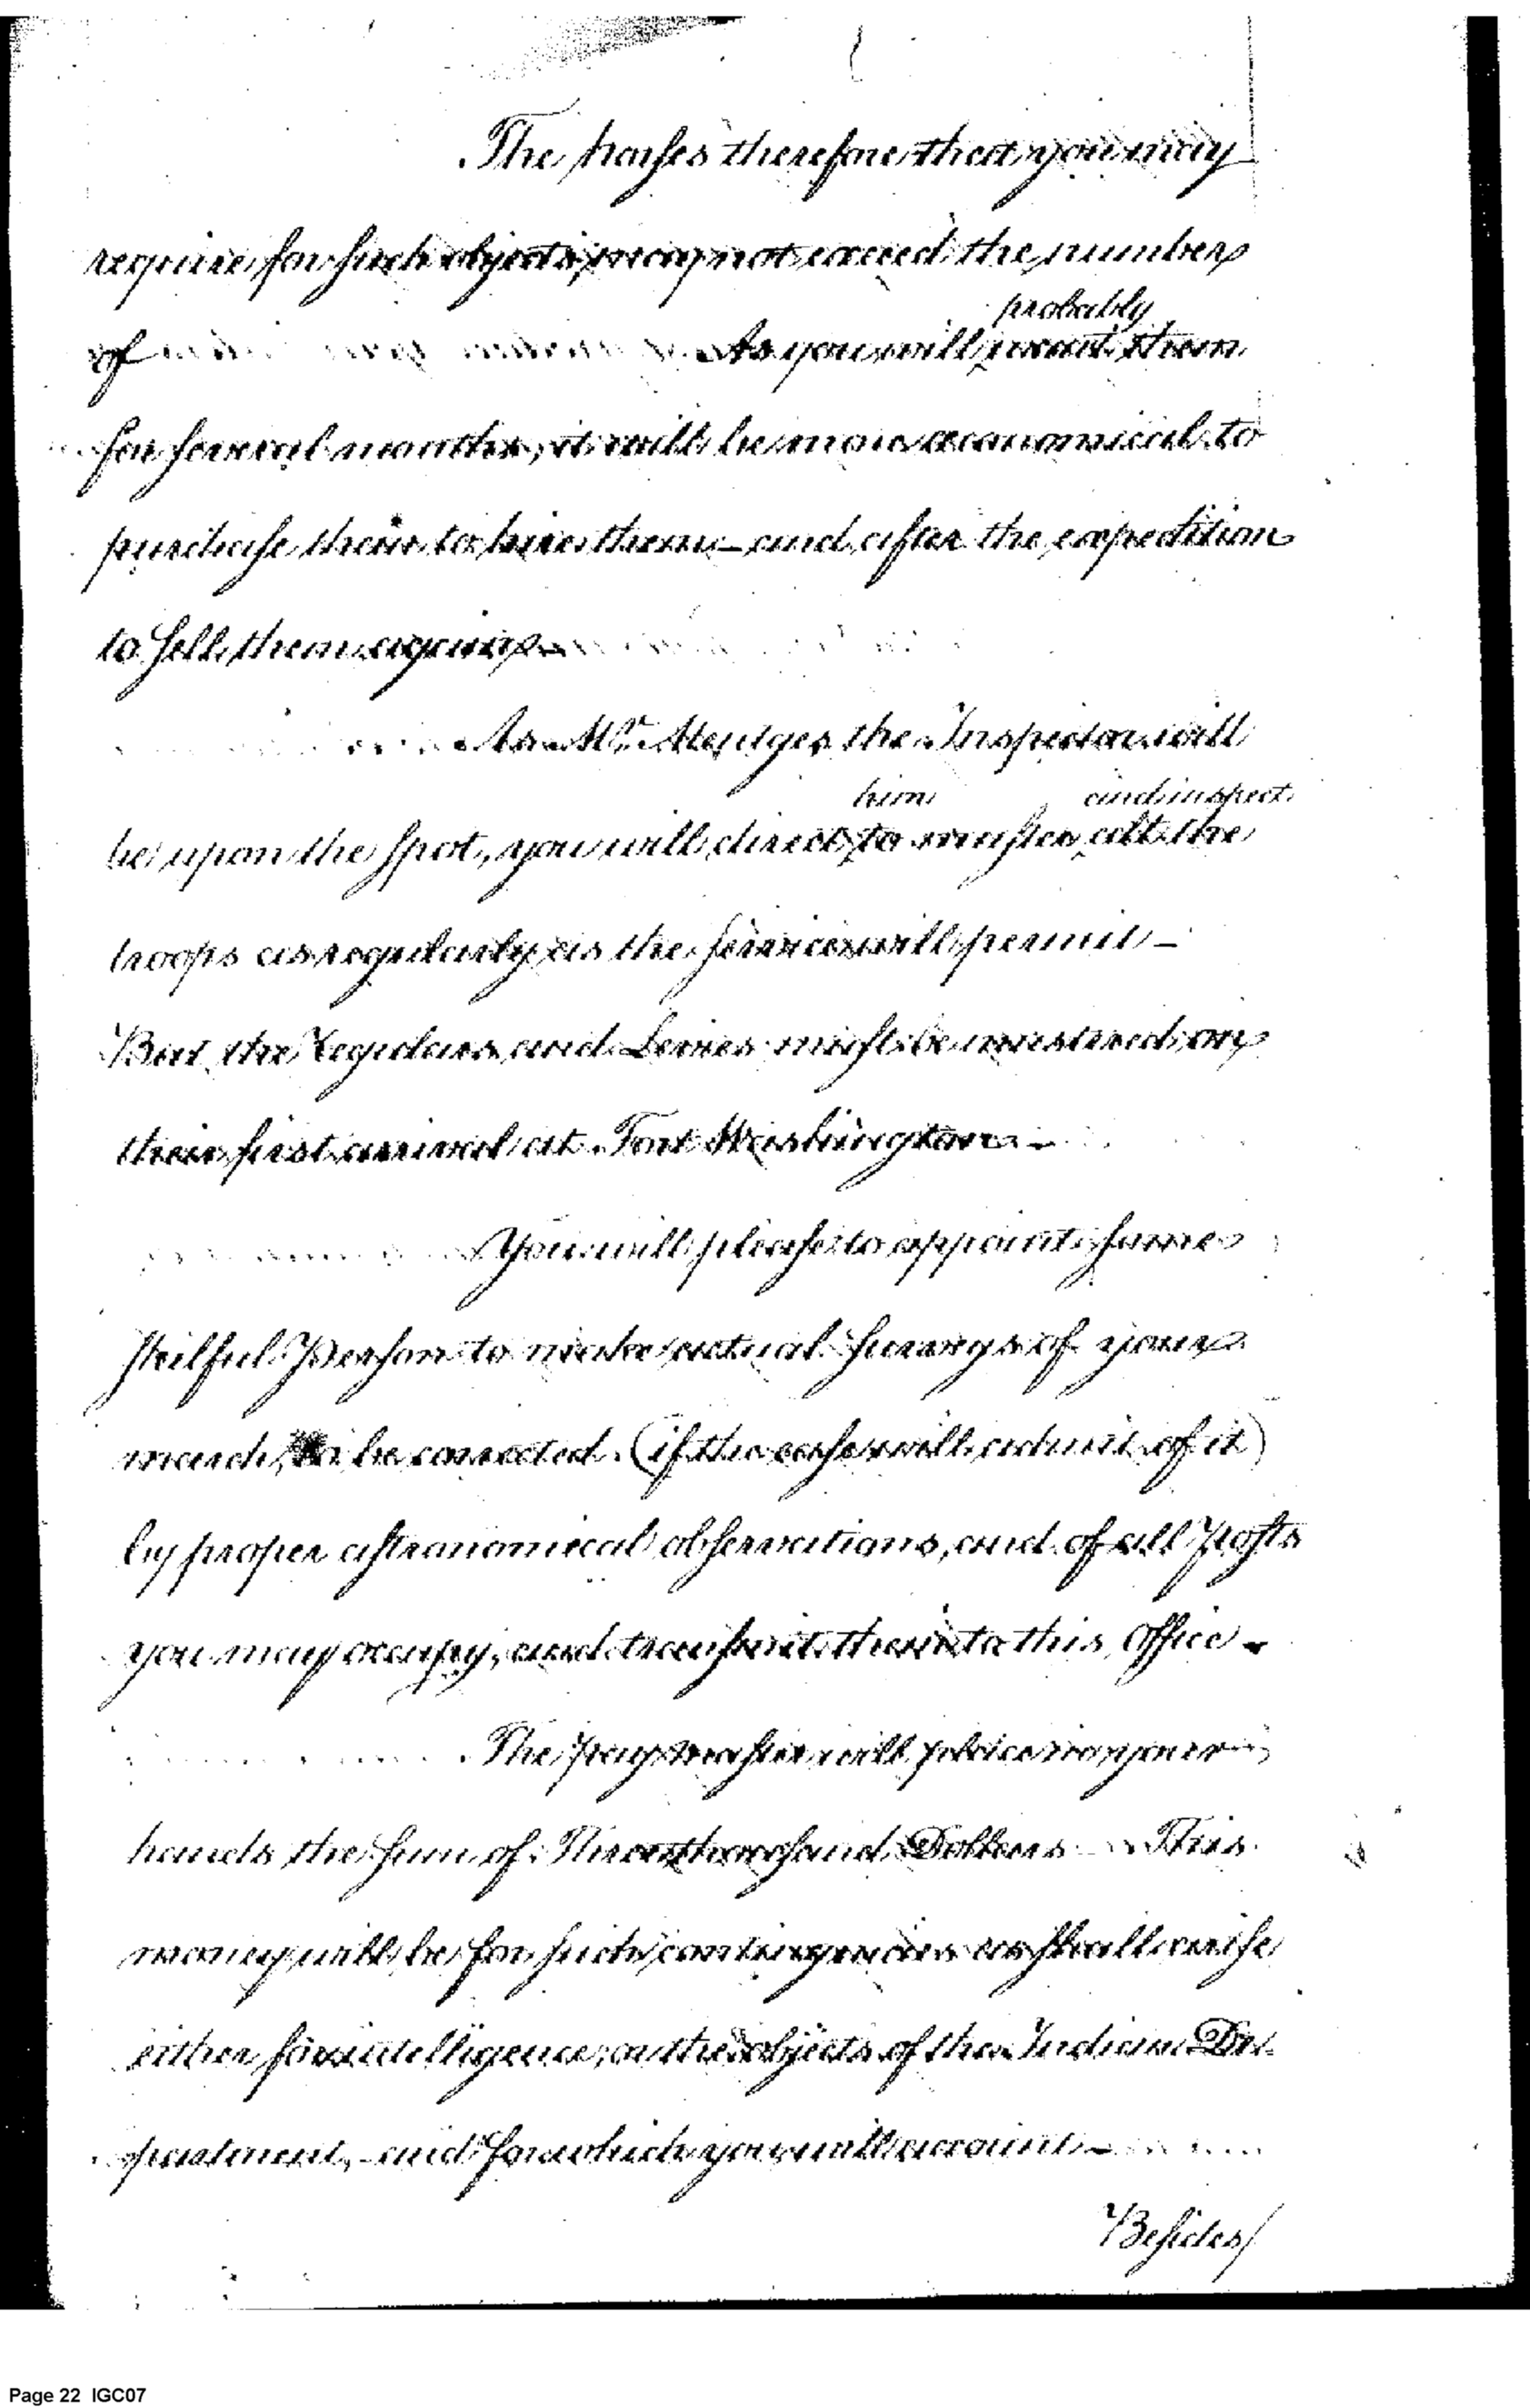 The horses therefore that you may
require for such objects, may not exceed the number
of As you will probably want them
for several months, it will be more œconomical to
purchase than to hire them – and after the expedition
to sell them again –
As Mr. Mentges the Inspector will
be upon the spot, you will direct him to muster and inspect all the
troops as regularly as the service will permit –
But the Regulars and Levies must be mustered on
their first arrival at Fort Washington –
You will please to appoint some
skilful Person to make actual surveys of your
march, to be corrected (if the case will admit of it)
by proper astronomical observations, and of all Posts
you may occupy, and transmit them to this office –
The Paymaster will place in your
hands the sum of Three thousand Dollars – This
money will be for such contingencies as shall arise
either for intelligence, or the objects of the Indian De-
partment, – and for which you will account –
Besides/
Page 22 IGC07